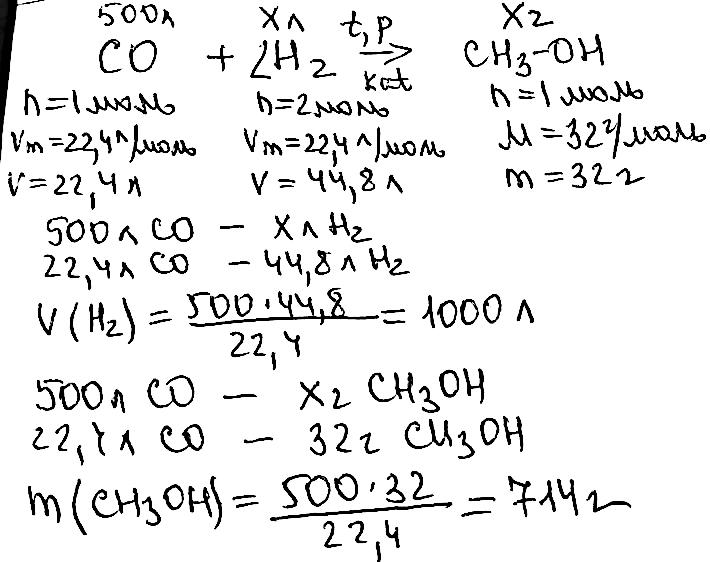 500л Xл t,p Xг
CO + 2H₂ → CH₃-OH
kat
n=1моль n=2моль n=1моль
Vm=22,4л/моль Vm=22,4л/моль M=32г/моль
V=22,4л V=44,8л m=32г
500л CO – Xл H₂
22,4л CO – 44,8л H₂
V(H₂) = 500·44,8 / 22,4 = 1000 л
500л CO – Xг CH₃OH
22,4л CO – 32г CH₃OH
m(CH₃OH) = 500·32 / 22,4 = 714г